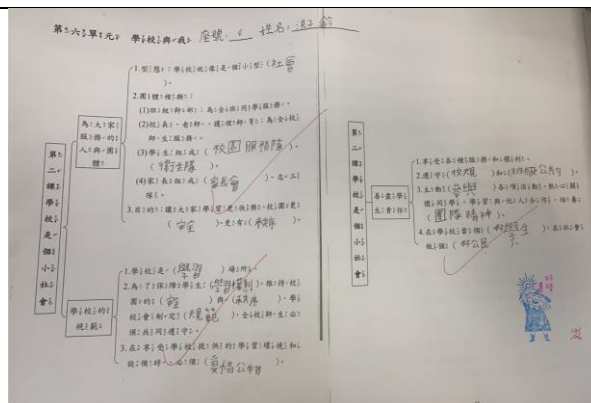 第六單元 學校與我 座號: 6 姓名:
第二課學校是個小社會
為大家服務的人與團體
1.型態:學校就像是一個小型(社會)。
2.團體種類:
(1)班級幹部:為全班同學服務。
(2)校長、老師、護理師等:為全校師生服務。
(3)學生組成:(校園服務隊)、(衛生隊)。
(4)家長組成:(家長會)、志工隊。
3.目的:讓大家學習更快樂,校園更(安全)、更有(秩序)。
學校的規範
1.學校是(學習)場所。
2.為了保障學生(學習權利),維持校園的(安全)與(秩序),學校會制定(規範),全校師生必須共同遵守。
3.在享受學校提供的學習環境和設備時,必須(愛惜公物)。
第二課學校是個小社會
善盡學生責任
1.享受各種服務和權利。
2.遵守(校規)和(班級公約)。
3.主動(參與)各項活動,熱心關懷同學,學習與他人合作,培養(團隊精神)。
4.在學校當個(好學生),在社會做個(好公民)。